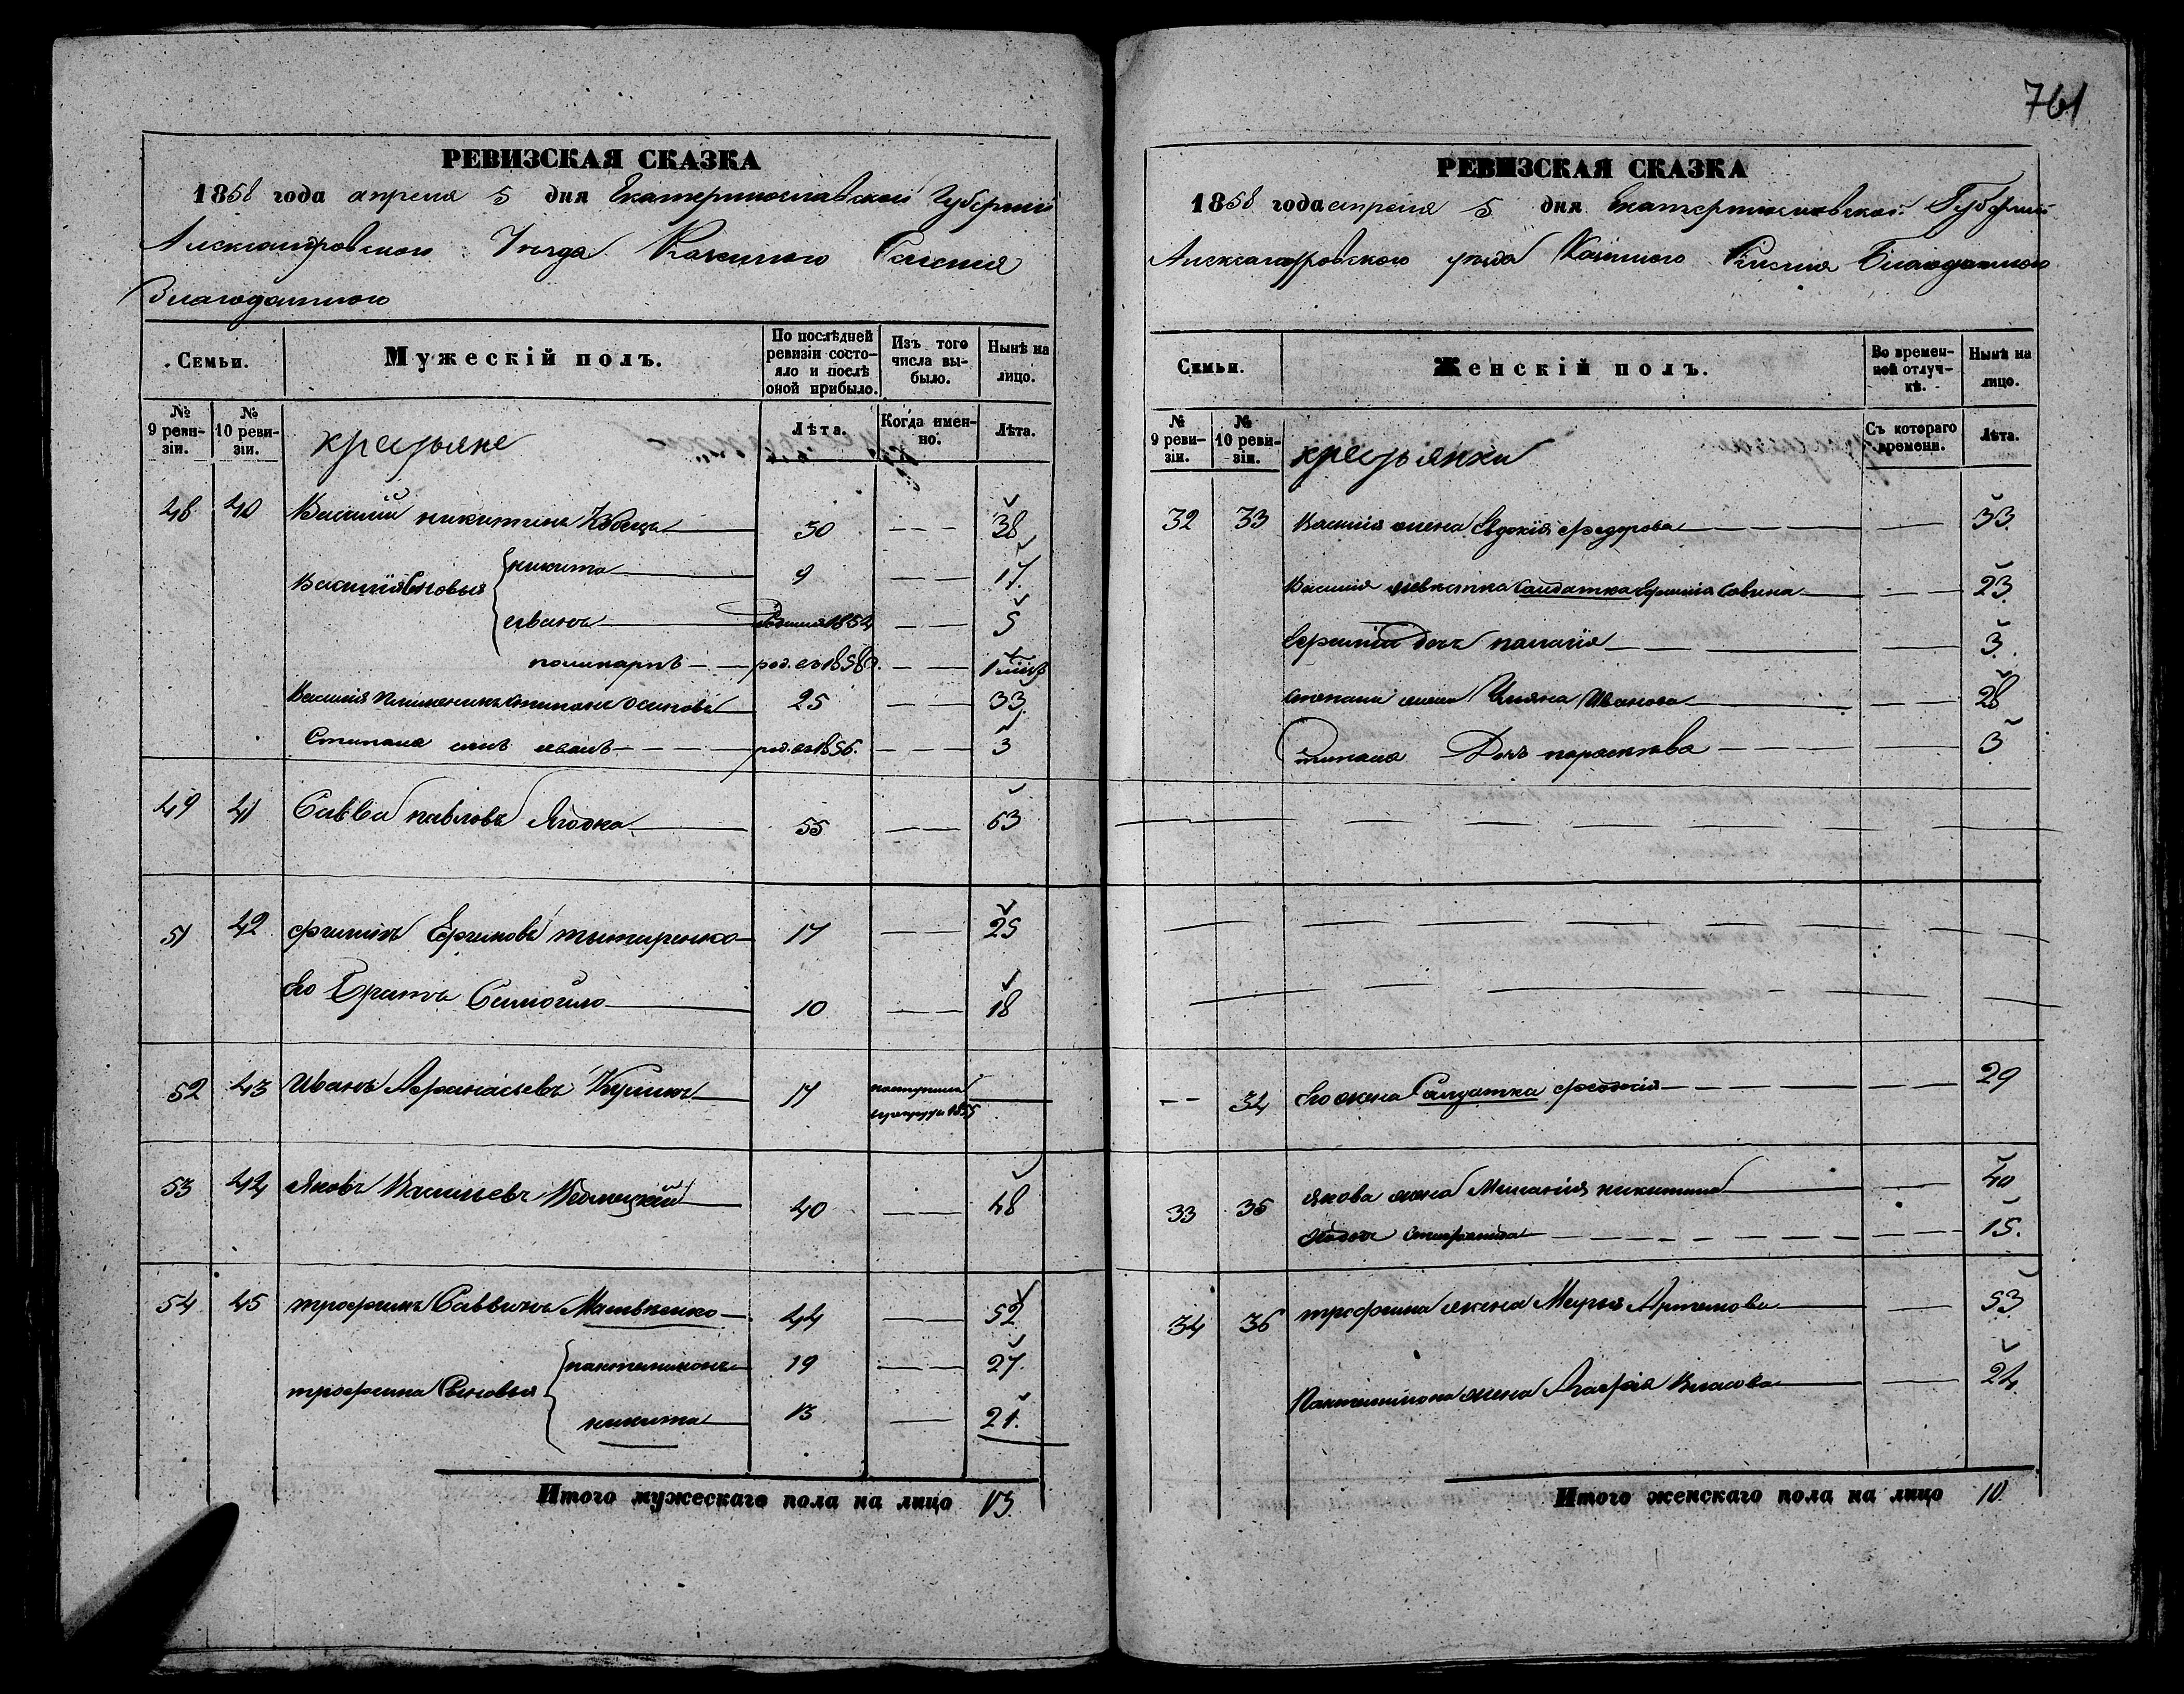 РЕВИЗСКАЯ СКАЗКА
1858 года апреля 5 дня Екатеринославской Губернии
Александровского Уезда Казенного Селения
Благодатного
Семьи.
Мужескій полъ.
По послѣдней ревизіи состояло и послѣ оной прибыло.
Изъ того числа выбыло.
Нынѣ на лицо.
№ 9 ревизіи.
№ 10 ревизіи.
крестьяне
Лѣта.
Когда именно.
Лѣта.
48 40 Василий никитинъ 30 — — 38
Василія Сыновья никита 9 — — 17.
иванъ 1852 — — 5
поликарпъ — — род. въ 1858 г. — — 1
Василія племенникъ степанъ осиповъ 25 — — 33
Степана сынъ иванъ — — — род. въ 1856. — — 3
49 41 Савва павловъ Ягодка 55 — — 63
51 42 филипъ Ефимовъ 17 — — 25
его Братъ Самойло 10 — — 18
52 43 Иванъ Афанасьевъ 17 1855
53 44 Яковъ Васильевъ 40 — — 48
54 45 трофимъ Саввинъ Матвѣенко 44 — — 52
трофима Сыновья пантелимонъ 19 — — 27.
никита 13 — 21.
Итого мужескаго пола на лицо 13.
761
РЕВИЗСКАЯ СКАЗКА
1858 года апреля 5 дня Екатеринославской Губернии
Александровского уезда Казенного Селения Благодатного
Семьи.
Женскій полъ.
Во временной отлучкѣ.
Нынѣ на лицо.
№ 9 ревизіи.
№ 10 ревизіи.
крестьянки
Съ котораго времени.
Лѣта.
32 33 Василія жена Евдокія федорова — — — 33.
Василія невѣстка Салдатка Саввина — — 23.
дочь палагія — — 3.
степана жена Ульяна Иванова — — 28
степана Дочь парасковья — — — 3
— — 34 его жена Салдатка феодосія — — — 29
33 35 Якова жена Меланія никитина — 40
дочь — — — 15.
34 36 трофима жена Марья Артемова — 53
Пантелимона жена Агафія Власова — 24
Итого женскаго пола на лицо 10.